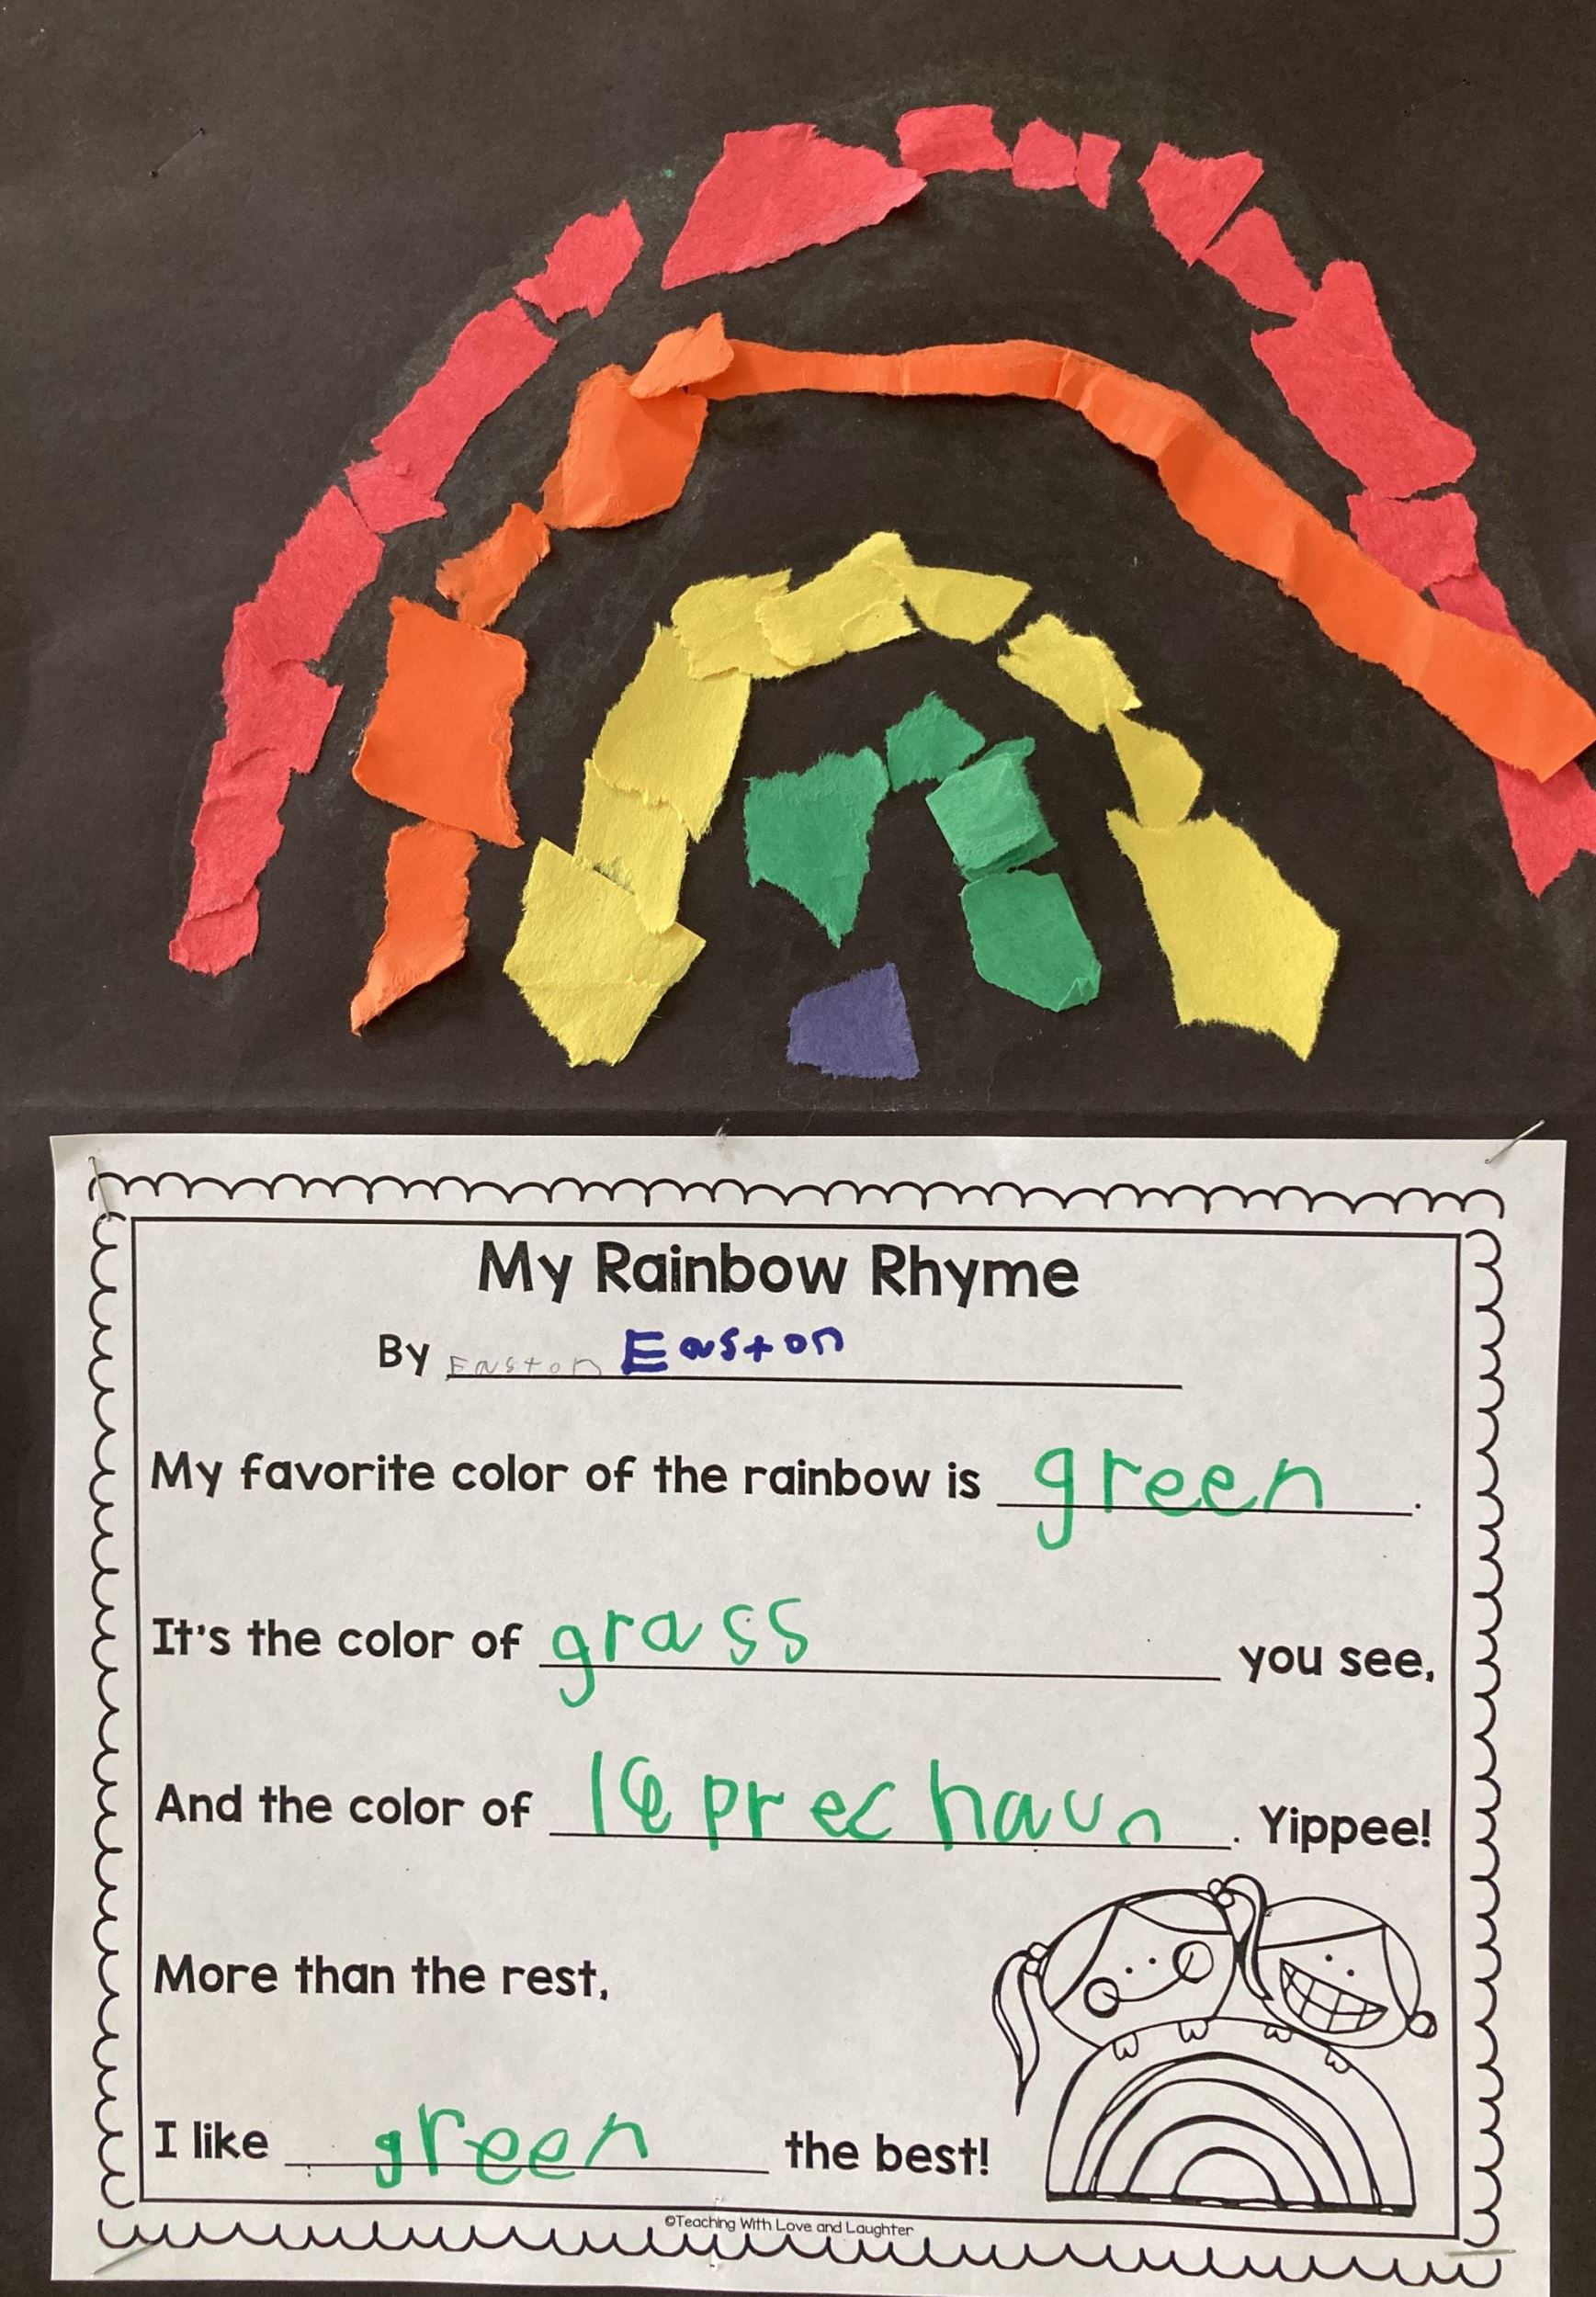 My Rainbow Rhyme
By Easton Easton
My favorite color of the rainbow is green.
It's the color of grass you see,
And the color of leprechaun. Yippee!
More than the rest,
I like green the best!
©Teaching With Love and Laughter